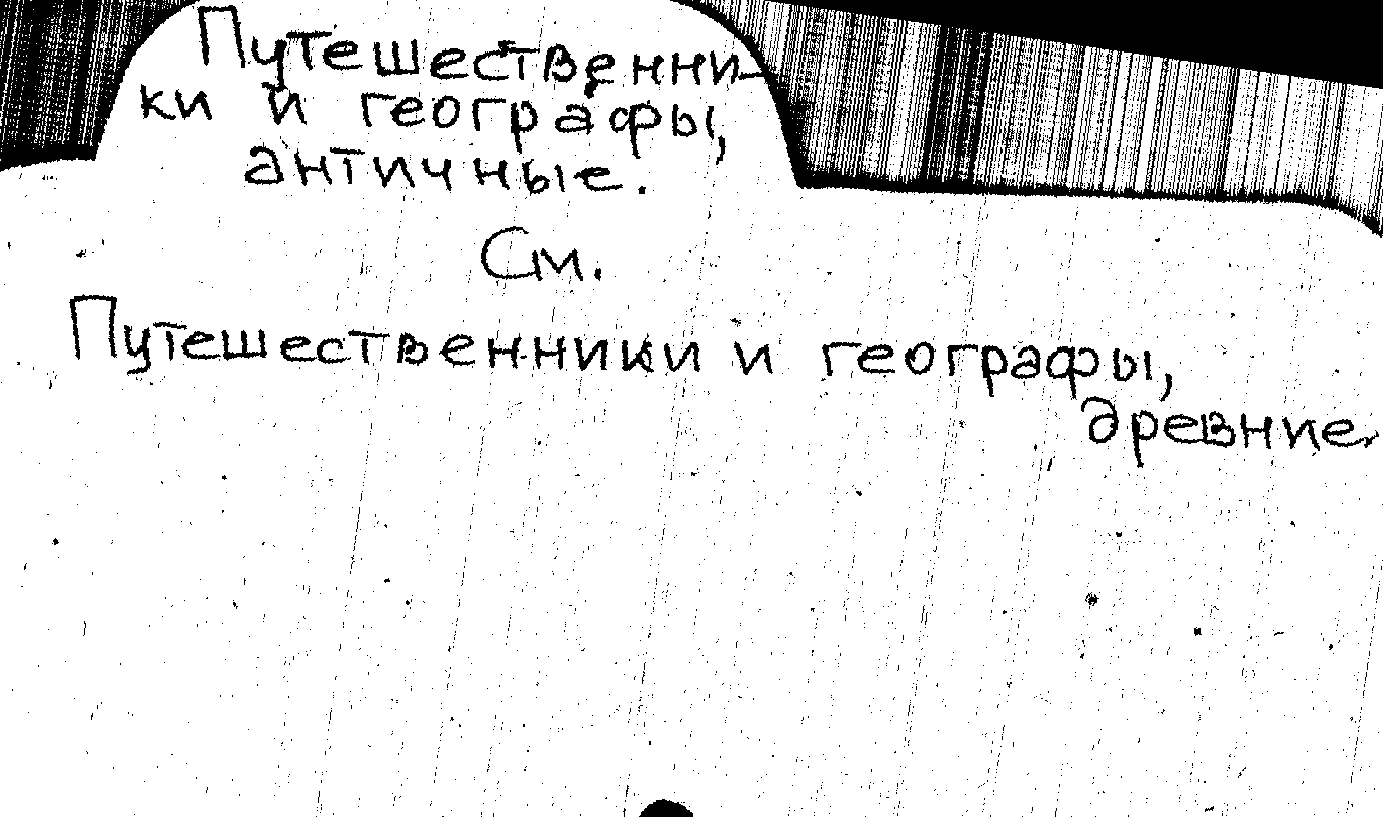 Путешественни-
ки и географы,
античные.
См.
Путешественники и географы,
древние.